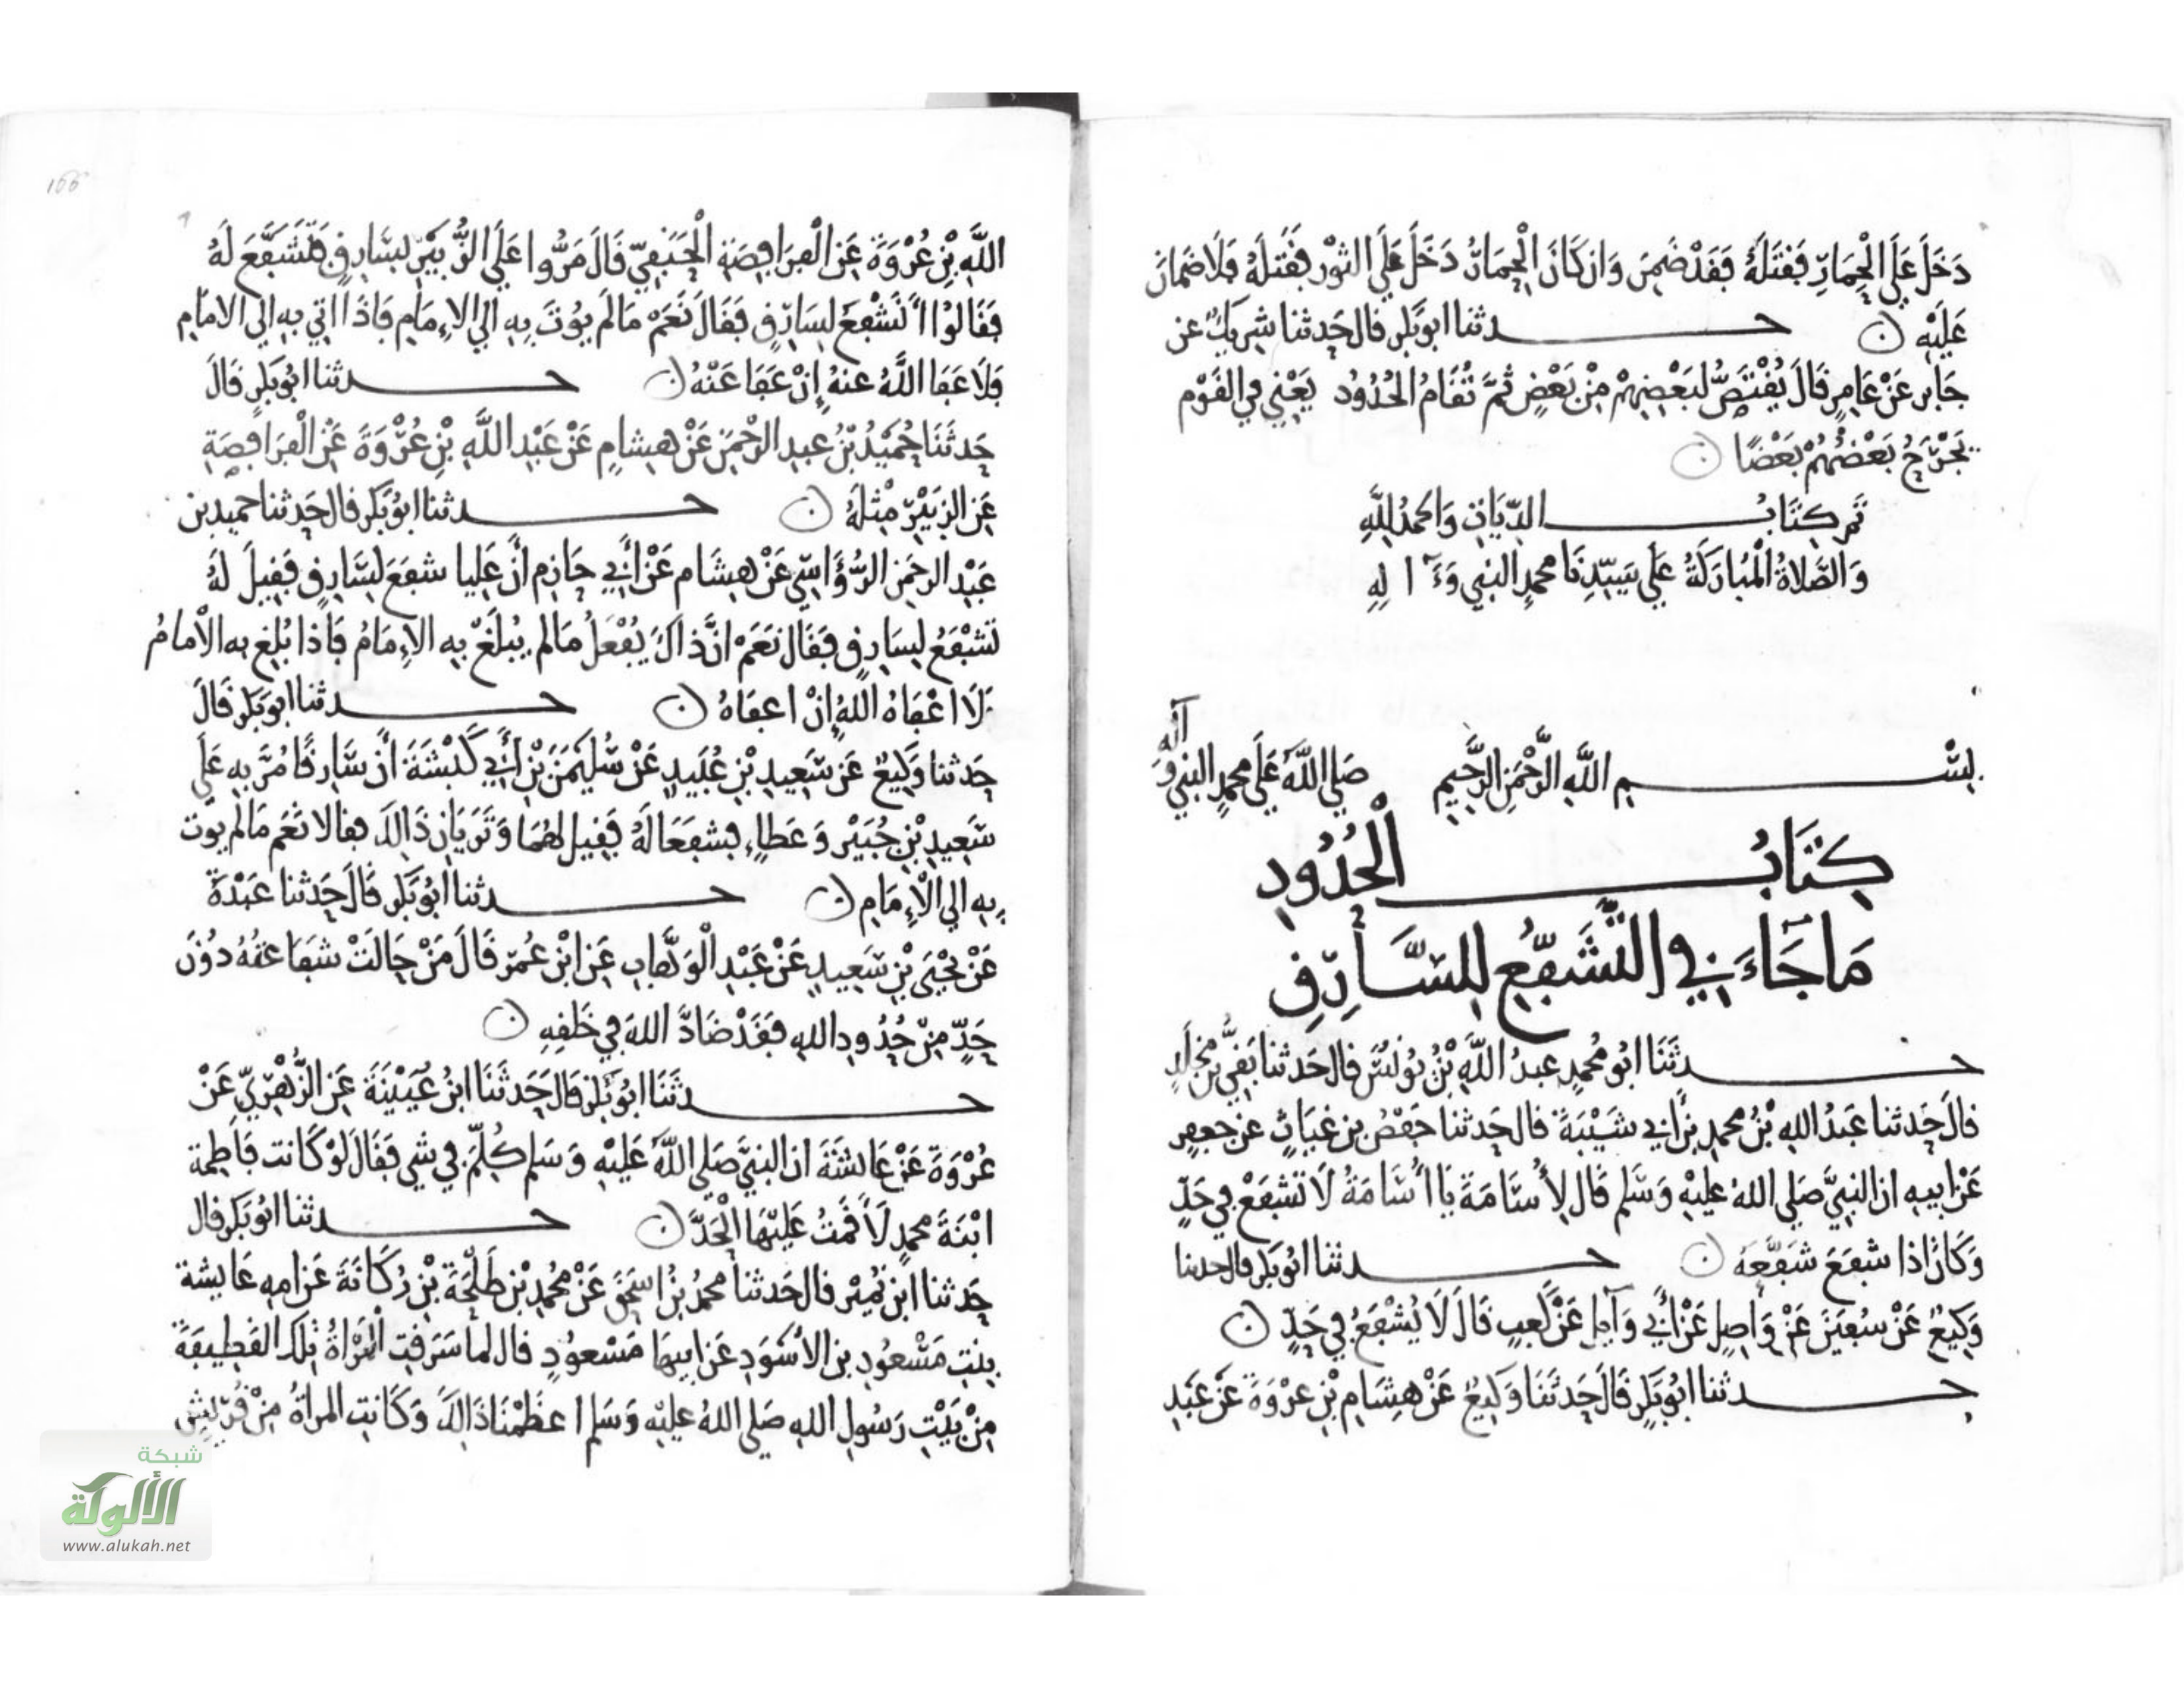 دَخَلَ عَلَى الْحِمَارِ فَقَتَلَهُ فَقَدْ ضَمِنَ وَان كَانَ الْحِمَارُ دَخَلَ عَلَى الثَّوْرِ فَقَتَلَهُ فَلَا ضَمَانَ
عَلَيْهِ ن حـدثنا ابو بكر قال حدثنا شريك عن
جَابر عَنْ عَامِرٍ قَالَ يُقْتَصُّ لِبَعْضِهِمْ مِنْ بَعْضٍ ثُمَّ تُقَامُ الحُدُودُ يَعْنِي في القَوْم
يَجْرَحُ بَعْضُهُمْ بَعْضًا ن
تَم كِتَابُ الدِّيَاتِ وَالحمدُ لِلَّهِ
وَالصَّلَاةُ الْمُبَارَكَةُ عَلَى سَيِّدِنَا محمدٍ النبي وَءَالِهِ
بِسْـمِ اللَّهِ الرَّحْمَنِ الرَّحِيمِ صَلى اللَّهُ عَلَى محمدٍ النبي وَآله
كِتَابُ الْحُدُودِ
مَا جَاءَ فِي التَّشَفُّعِ لِلسَّارِقِ
حـدثَنَا ابُو مُحمدٍ عبدُ اللَّهِ بْنُ يُونُسَ قال حَدثنا بَقِيُّ بن مَخلَدٍ
قالَ حَدثنا عَبْدُ اللهِ بْنُ محمدِ بْنِ أَبي شَيْبَةَ قال حَدثنا حَفْصُ بن غِيَاثٍ عن جعفرٍ
عَنْ ابيهِ ان النبيَّ صَلى اللهُ عليْهِ وَسَلم قَال لِأُسَامَةَ يَا أُسَامَةُ لَا تَشْفَعْ في حَدٍّ
وَكَانَ اذا شَفَعَ شَفَّعَهُ ن حـدثنا ابُو بَكر قال حدثنا
وَكِيعٌ عَنْ سُفْيَنَ عَنْ وَاصِلٍ عَنْ أَبي وَآيِلٍ عَنْ كَعبٍ قَالَ لَا يُشْفَعُ فِي حَدٍّ ن
حـدثنا ابُو بَكرٍ قَالَ حَدثَنَا وَكِيعٌ عَنْ هِشَامِ بْنِ عرْوَةَ عَنْ عَبْدِ
166
اللَّهِ بْنِ عُرْوَةَ عَنِ الْفَرَافِصَةِ الْحَنَفِيِّ قَالَ مَرُّوا عَلَى الزُّبَيْرِ بِسَارِقٍ فَتَشَفَّعَ لَهُ
فَقَالُوا أَتَشْفَعُ لِسَارِقٍ فَقَالَ نَعَمْ مَا لَم يُوتَ بِهِ الى الاِمَامِ فَاذَا اتي بهِ الي الامَامِ
فَلَا عَفَا اللَّهُ عنهُ إِنْ عَفَا عَنْهُ ن حـدثنا ابُو بَكرٍ قَالَ
حَدثَنَا حُمَيْدُ بْنُ عبدِ الرحْمَنِ عَنْ هِشامٍ عَنْ عَبْدِ اللَّهِ بْنِ عُرْوَةَ عَنِ الْفَرَافِصَةِ
عَنِ الزبَيْرِ مِثْلَهُ ن حـدثنا ابُو بَكر قال حَدثنا حميد بن
عَبْد الرحمَن الرُّؤَاسِيّ عَنْ هِشَام عَنْ أَبِي حَازِم أَنَّ عَلِيا شفَعَ لِسَارِقٍ فَقِيلَ لهُ
تَشْفَعُ لِسَارِقٍ فَقَال نَعَمْ انَّ ذاكَ يُفْعَلُ مَا لم يُبْلَغْ بهِ الاِمَامُ فَإِذا بُلِغ به الْأمامُ
فَلَا اعْفَاهُ اللَّهُ إِنْ اعفَاهُ ن حـدثنا ابو بَكر قَالَ
حَدثنا وَكِيعٌ عَن سَعِيدِ بْنِ عُبَيدٍ عَنْ سُلَيْمَنَ بْنِ أَبِي كَبْشَةَ أَنَّ سَارِقًا مُرَّ بِهِ عَلَى
سَعِيدِ بْنِ جُبَيْر وَعَطاءٍ فشفَعَا لَهُ فَقِيل لهُمَا وَتَرَيَانِ ذَالِكَ فقالا نَعَم مَا لم يوت
بِهِ الي الْاِمَامِ ن حـدثنا ابُو بَكر قَالَ حَدثنا عَبْدَةُ
عَنْ يَحْيَى بْنِ سَعِيدٍ عَنْ عَبْدِ الْوَهَّابِ عَنِ ابْنِ عُمَر قَالَ مَنْ حَالَتْ شفَاعَتُهُ دُونَ
حَدٍّ مِنْ حُدُودِ اللهِ فَقَدْ ضَادَّ اللهَ فِي خَلقِهِ ن
حـدثَنَا ابُو بَكر قَالَ حَدثَنَا ابنُ عُيَيْنَةَ عَنِ الزُّهْرِيِّ عَنْ
عُرْوَةَ عَنْ عَائشَةَ ان النبيَّ صَلى اللَّهُ عَلَيْهِ وَسَلم كُلِّمَ في شي فَقَالَ لَوْ كَانت فَاطمة
ابْنَةَ محمدٍ لَأَقَمْتُ عَلَيْهَا الْحَدَّ ن حـدثنا ابُو بَكر قال
حَدثنا ابن نُمَيْر قال حَدثنا محمدُ بْنُ اسحَقَ عَنْ مُحمدِ بْنِ طَلْحَةَ بْنِ رُكَانَةَ عَن امهِ عَايشة
بِنتِ مَسْعُودِ بن الأسْوَدِ عَن ابيهَا مَسْعودٍ قال لما سَرَقتِ الْمَرْأةُ تِلكَ القَطِيفَةَ
مِنْ بَيْتِ رَسُولِ اللهِ صَلى اللهُ عليْهِ وَسَلم اعظَمْنَا ذَالِكَ وَكَانتِ المراةُ مِنْ قُرَيشٍ
شبكة
الألوكة
www.alukah.net